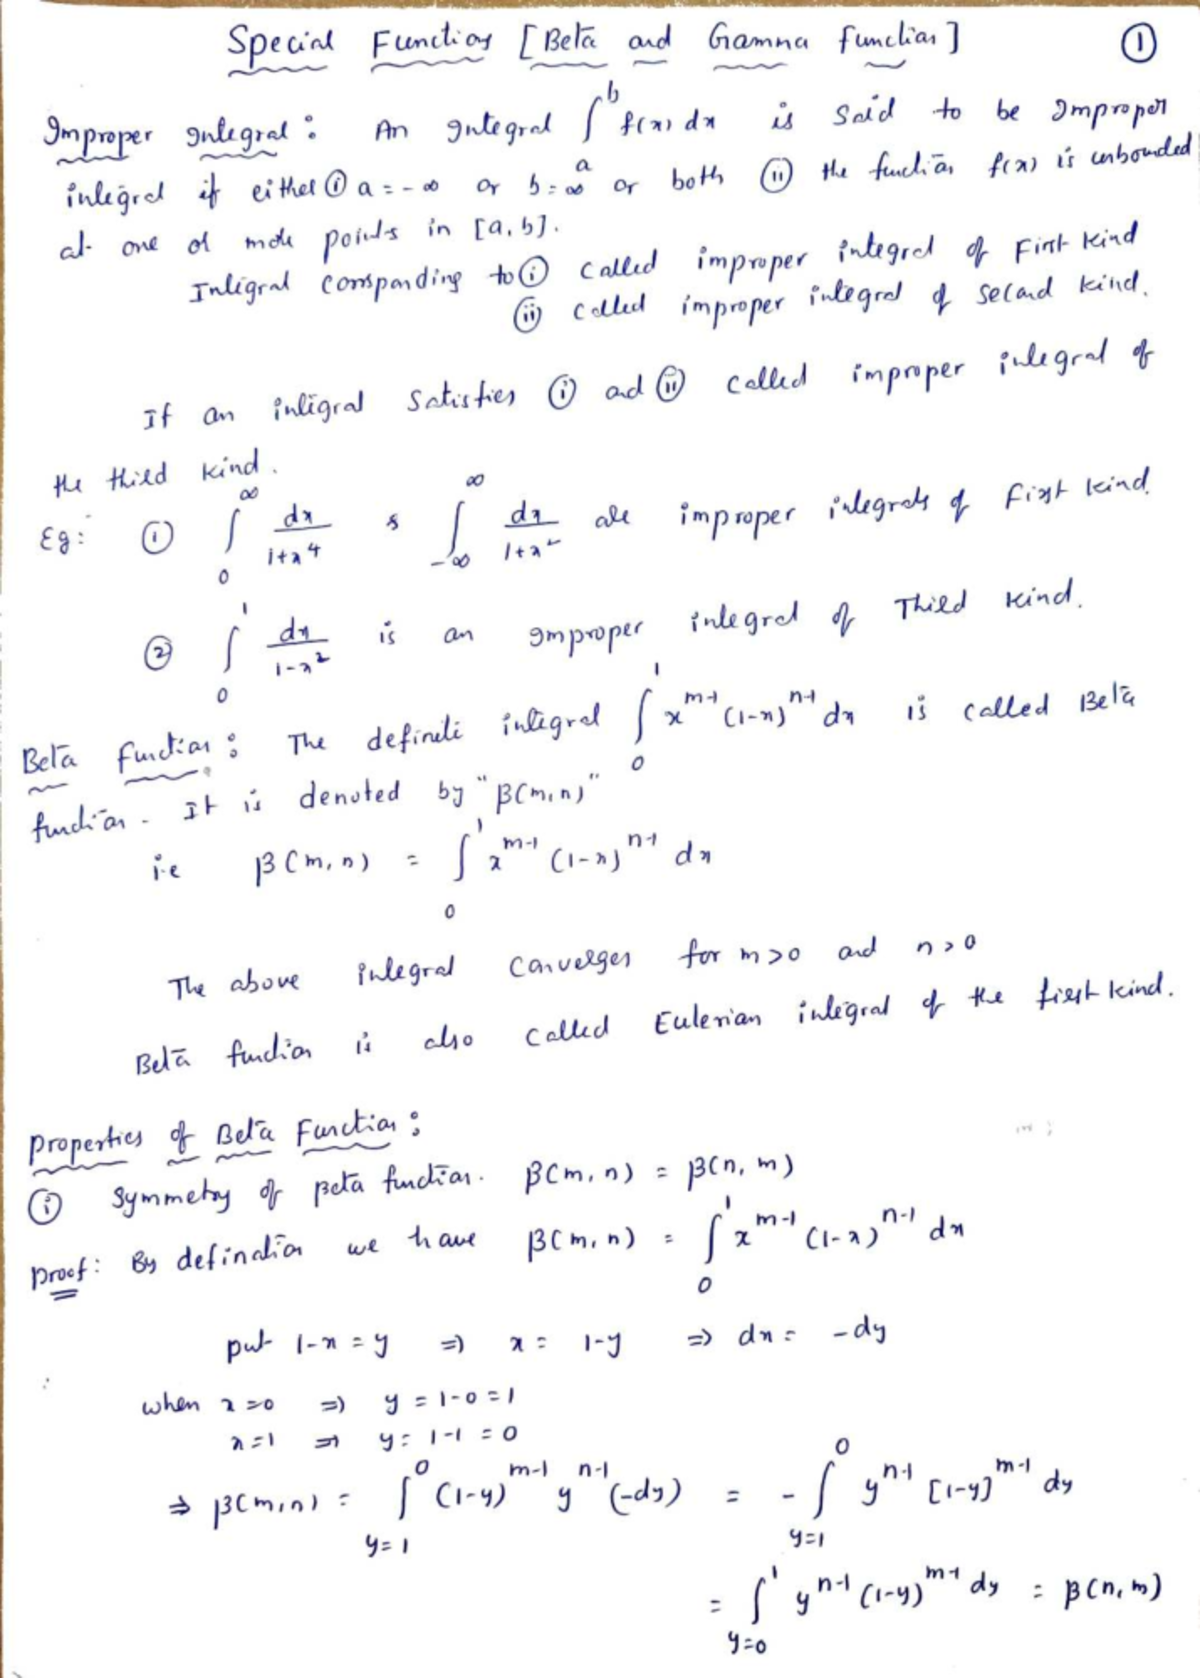 Special Functions [Beta and Gamma function] ①
Improper Integral : An Integral ∫_a^b f(x) dx is said to be Improper
integral if either ⓘ a = -∞ or b = ∞ or both ⓘⓘ the function f(x) is unbounded
at one or more points in [a, b].
Integral corrsponding to ⓘ called improper integral of First kind
ⓘⓘ called improper integral of second kind.
If an integral satisfies ⓘ and ⓘⓘ called improper integral of
the third kind.
Eg: ① ∫_0^∞ dx/(1+x^4) & ∫_{-∞}^∞ dx/(1+x^2) are improper integrals of first kind.
② ∫_0^1 dx/(1-x^2) is an Improper integral of Third kind.
Beta function : The definite integral ∫_0^1 x^{m-1} (1-x)^{n-1} dx is called Beta
function. It is denoted by "β(m,n)"
i.e β(m, n) = ∫_0^1 x^{m-1} (1-x)^{n-1} dx
The above integral converges for m>0 and n>0
Beta function is also called Eulerian integral of the first kind.
Properties of Beta Function :
ⓘ Symmetry of Beta function. β(m, n) = β(n, m)
Proof: By defination we have β(m, n) = ∫_0^1 x^{m-1} (1-x)^{n-1} dx
put 1-x = y ⇒ x = 1-y ⇒ dx = -dy
when x=0 ⇒ y = 1-0 = 1
x=1 ⇒ y = 1-1 = 0
⇒ β(m,n) = ∫_{y=1}^0 (1-y)^{m-1} y^{n-1} (-dy) = - ∫_{y=1}^0 y^{n-1} [1-y]^{m-1} dy
= ∫_{y=0}^1 y^{n-1} (1-y)^{m-1} dy = β(n, m)